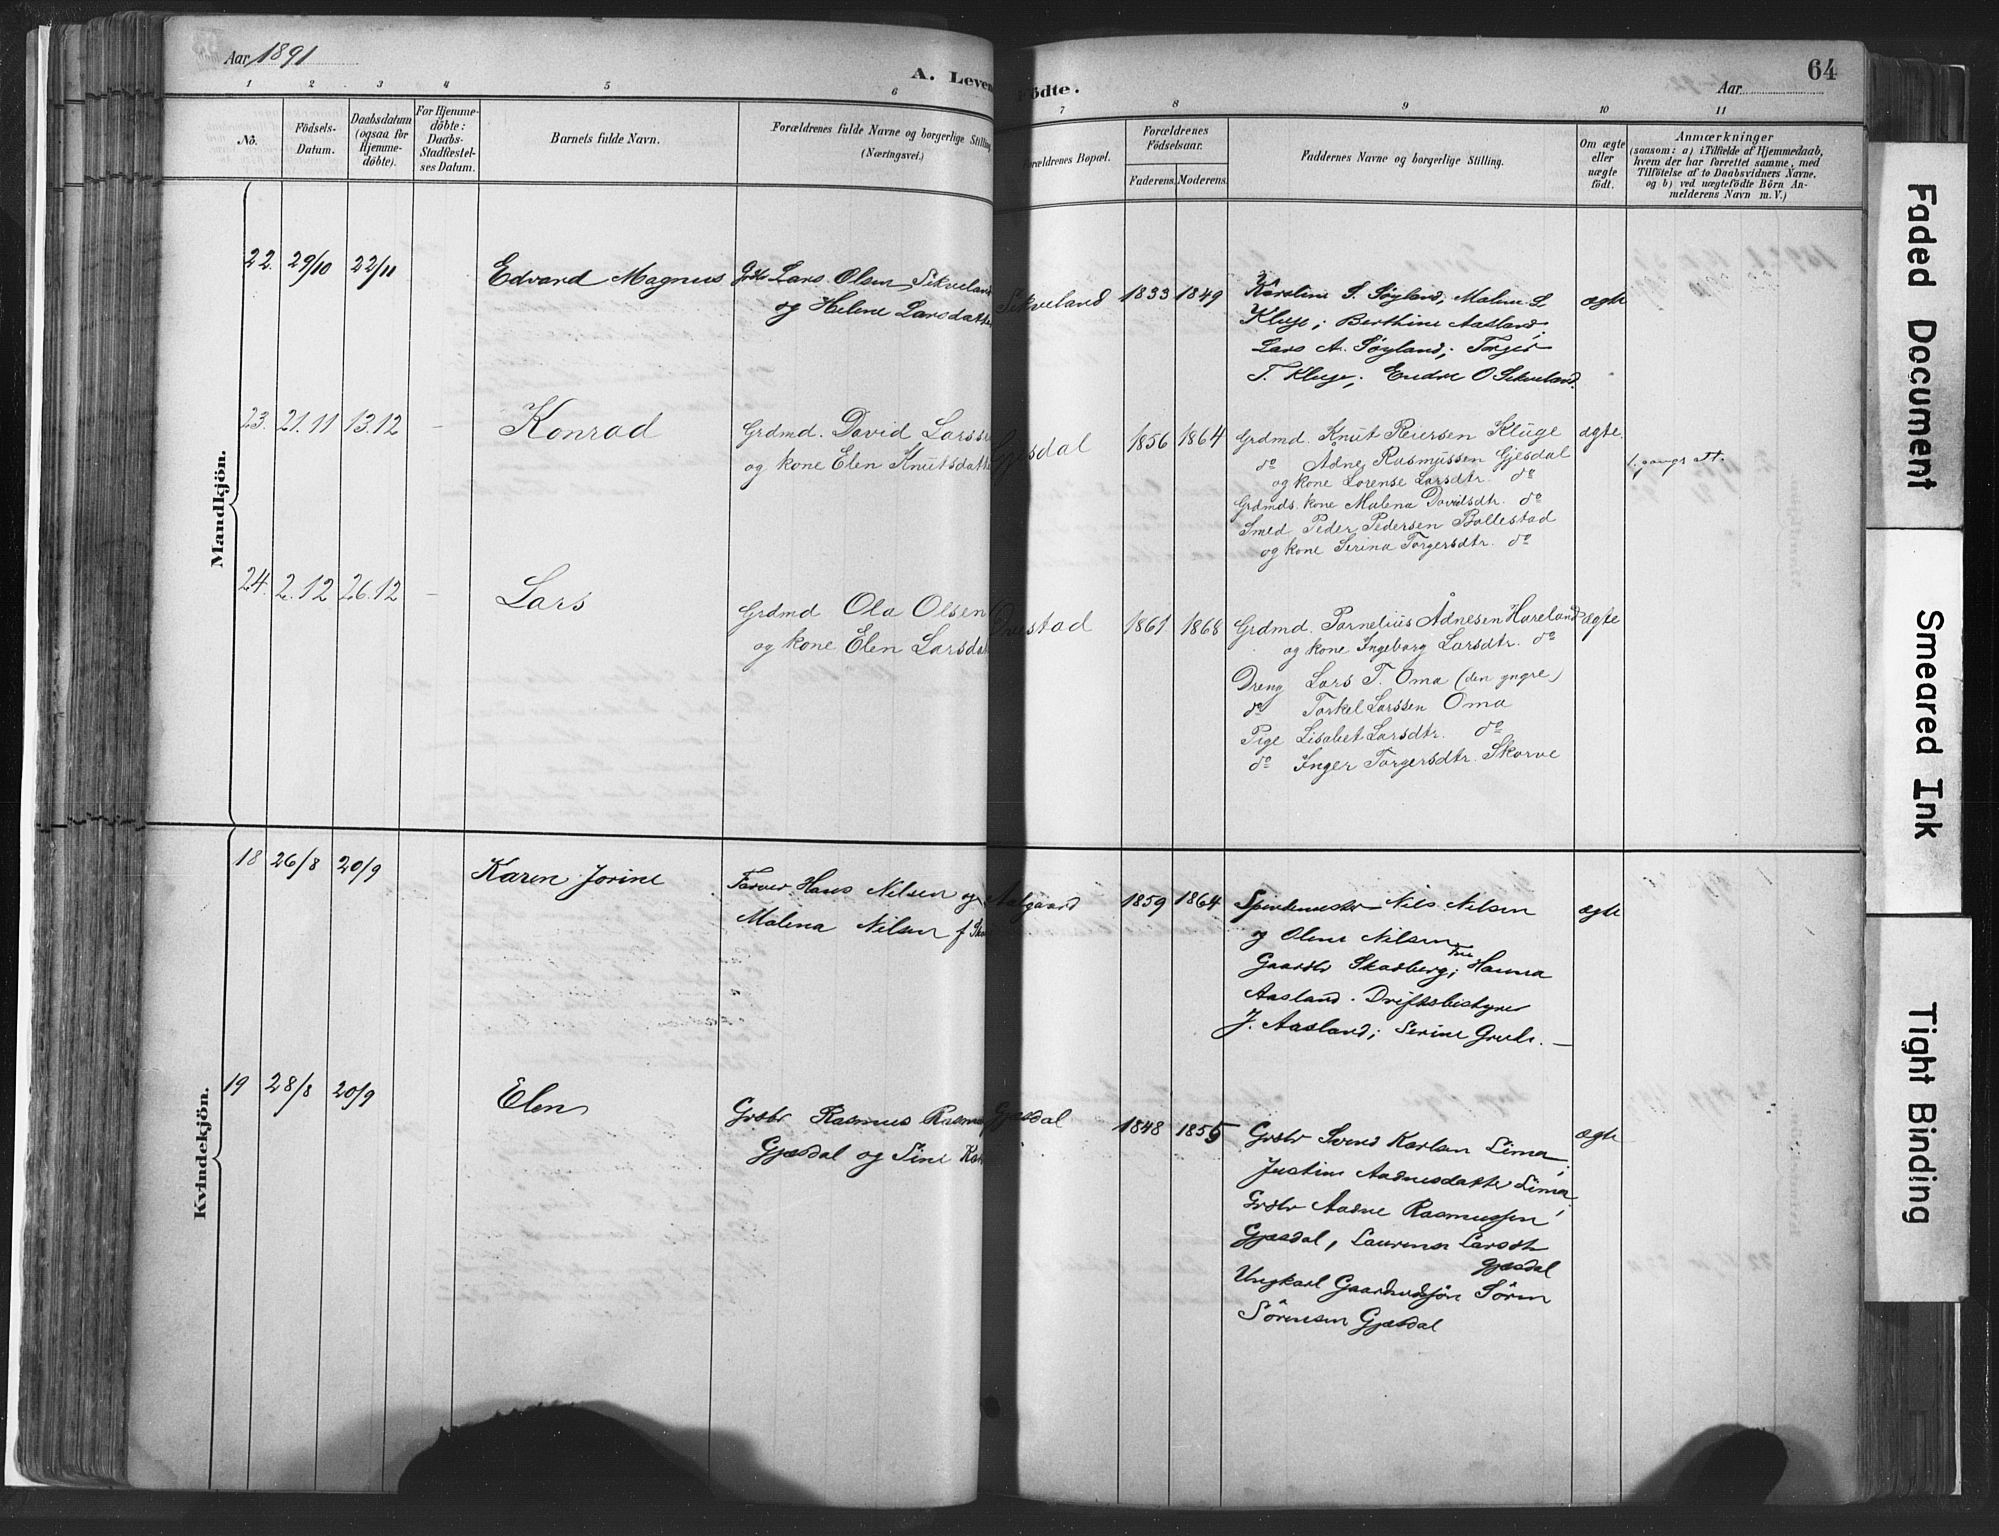 Aar 1891
A. Leven
födte.
Aar
64
1 2 3 4 5 6 7 8 9 10 11
No.
Födsels-
Datum.
Daabsdatum
(ogsaa for
Hjemme-
döbte).
For Hjemme-
döbte:
Daabs-
Stadfæstel-
ses Datum.
Barnets fulde Navn.
Forældrenes fulde Navne og borgerlige Stilling
(Næringsvei.)
Forældrenes Bopæl.
Forældrenes
Födselsaar.
Faderens. Moderens.
Faddernes Navne og borgerlige Stilling.
Om ægte
eller
uægte
födt.
Anmærkninger
(saasom: a) i Tilfælde af Hjemmedaab,
hvem der har forrettet samme, med
Tilföielse af to Daabsvidners Navne,
og b) ved uægtefödte Börn An-
melderens Navn m. V.)
Mandkjön.
22. 29/10 22/11
Edvard Magnus
Lars Olsen Sikveland
og Helene Larsdatter
Sikveland
1833 1849
Karoline S. Søyland, Malene S.
Kluge; Berthine Aasland;
Lars A. Søyland; Torger
T. Kluge; Endre O Sikveland.
ægte
23. 21.11 13.12 -
Konrad
Grdmd. David Larssen
og kone Elen Knutsdatter
Gjesdal
1856 1864
Grdmd. Knut Reiersen Kluge
do Adne Rasmussen Gjesdal
og kone Lorense Larsdtr. do
Grdmds. kone Malena Davidsdtr. do
Smed Peder Pedersen Bollestad
og kone Serina Torgersdtr. do
ægte.
24. 2.12 26.12 -
Lars
Grdmd Ola Olsen
og kone Elen Larsdat
1861 1868
Grdmd. Parnelius Ådnesen Hareland
og kone Ingeborg Larsdtr. do
Dreng Lars T. Oma (den yngre)
do Torkel Larssen Oma
Pige Lisabet Larsdtr. do
do Inger Torgersdtr. Skarve
ægte
Kvindekjön.
18 26/8 20/9
Karen Jorine
Farver Hans Nilsen og
Malena Nilsen f
Aalgaard
1859 1864
Spindemester Nils Nilsen
og Olene Nilsen
Gaardbr Skadberg; Fru Hanna
Aasland. Driftsbestyrer
J. Aasland; Serine Grude. —
ægte
19 28/8 20/9
Elen
Grdbr Rasmus Rasmus
Gjesdal og Sine
Gjesdal
1848 1855
Grdbr Svend Karlsen Lima;
Justine Aadnesdatter Lima;
Grdbr Aadne Rasmussen
Gjesdal, Laurensa Larsdtr
Gjesdal
Ungkarl Gaardmdsøn Sören
Sörensen Gjesdal
ægte
Faded Document
Smeared Ink
Tight Binding